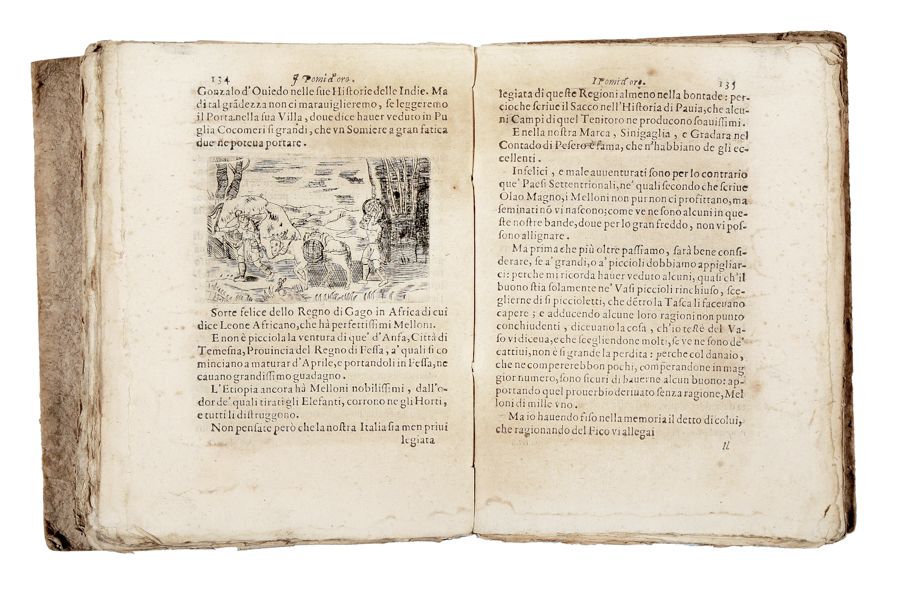 134 I Pomi d'oro.
Gonzalo d'Ouiedo nelle sue Historie delle Indie. Ma
di tal grãdezza non ci marauiglieremo, se leggeremo
il Porta nella sua Villa, doue dice hauer veduto in Pu
glia Cocomeri si grandi, che vn Somiere a gran fatica
due ne poteua portare.
Sorte felice dello Regno di Gago in Africa di cui
dice Leone Africano, che hà perfettissimi Melloni.
E non è picciola la ventura di que' d'Anfa, Città di
Temesna, Prouincia del Regno di Fessa, a' quali si co
minciano a maturar d'Aprile, e portandoli in Fessa, ne
cauano grandissimo guadagno.
L'Etiopia ancora hà Melloni nobilissimi, dall'o-
dor de' quali tirati gli Elefanti, corrono ne gli Horti,
e tutti li distruggono.
Non pensate però che la nostra Italia sia men priui
legiata
I Pomi d'oro. 135
legiata di queste Regioni almeno nella bontade: per-
cioche scriue il Sacco nell'Historia di Pauia, che alcu-
ni Campi di quel Tenitoro ne producono soauissimi.
E nella nostra Marca, Sinigaglia, e Gradara nel
Contado di Pesero è fama, che n'habbiano de gli ec-
cellenti.
Infelici, e male auuenturati sono per lo contrario
que' Paesi Settentrionali, ne' quali secondo che scriue
Olao Magno, i Melloni non pur non ci profittano, ma
seminati nõ vi nascono; come ve ne sono alcuni in que-
ste nostre bande, doue per lo gran freddo, non vi pos-
sono allignare.
Ma prima che più oltre passiamo, sarà bene consi-
derare, se a' grandi, o a' piccioli dobbiamo appigliar-
ci: perche mi ricorda hauer veduto alcuni, quasi ch'il
buono stia solamente ne' Vasi piccioli rinchiuso, sce-
glierne di si piccioletti, che dẽtro la Tasca li faceuano
capere; e adducendo alcune loro ragioni non punto
conchiudenti, diceuano la cosa, ch'io testè del Va-
so vi diceua, e che scegliendone molti, se ve ne sono de'
cattiui, non è si grande la perdita: perche col danaio,
che ne compererebbon pochi, comperandone in mag
gior numero, sono sicuri di hauerne alcun buono: ap-
portando quel prouerbio deriuato senza ragione, Mel
loni di mille vno.
Ma io hauendo fiso nella memoria il detto di colui,
che ragionando del Fico vi allegai
Il